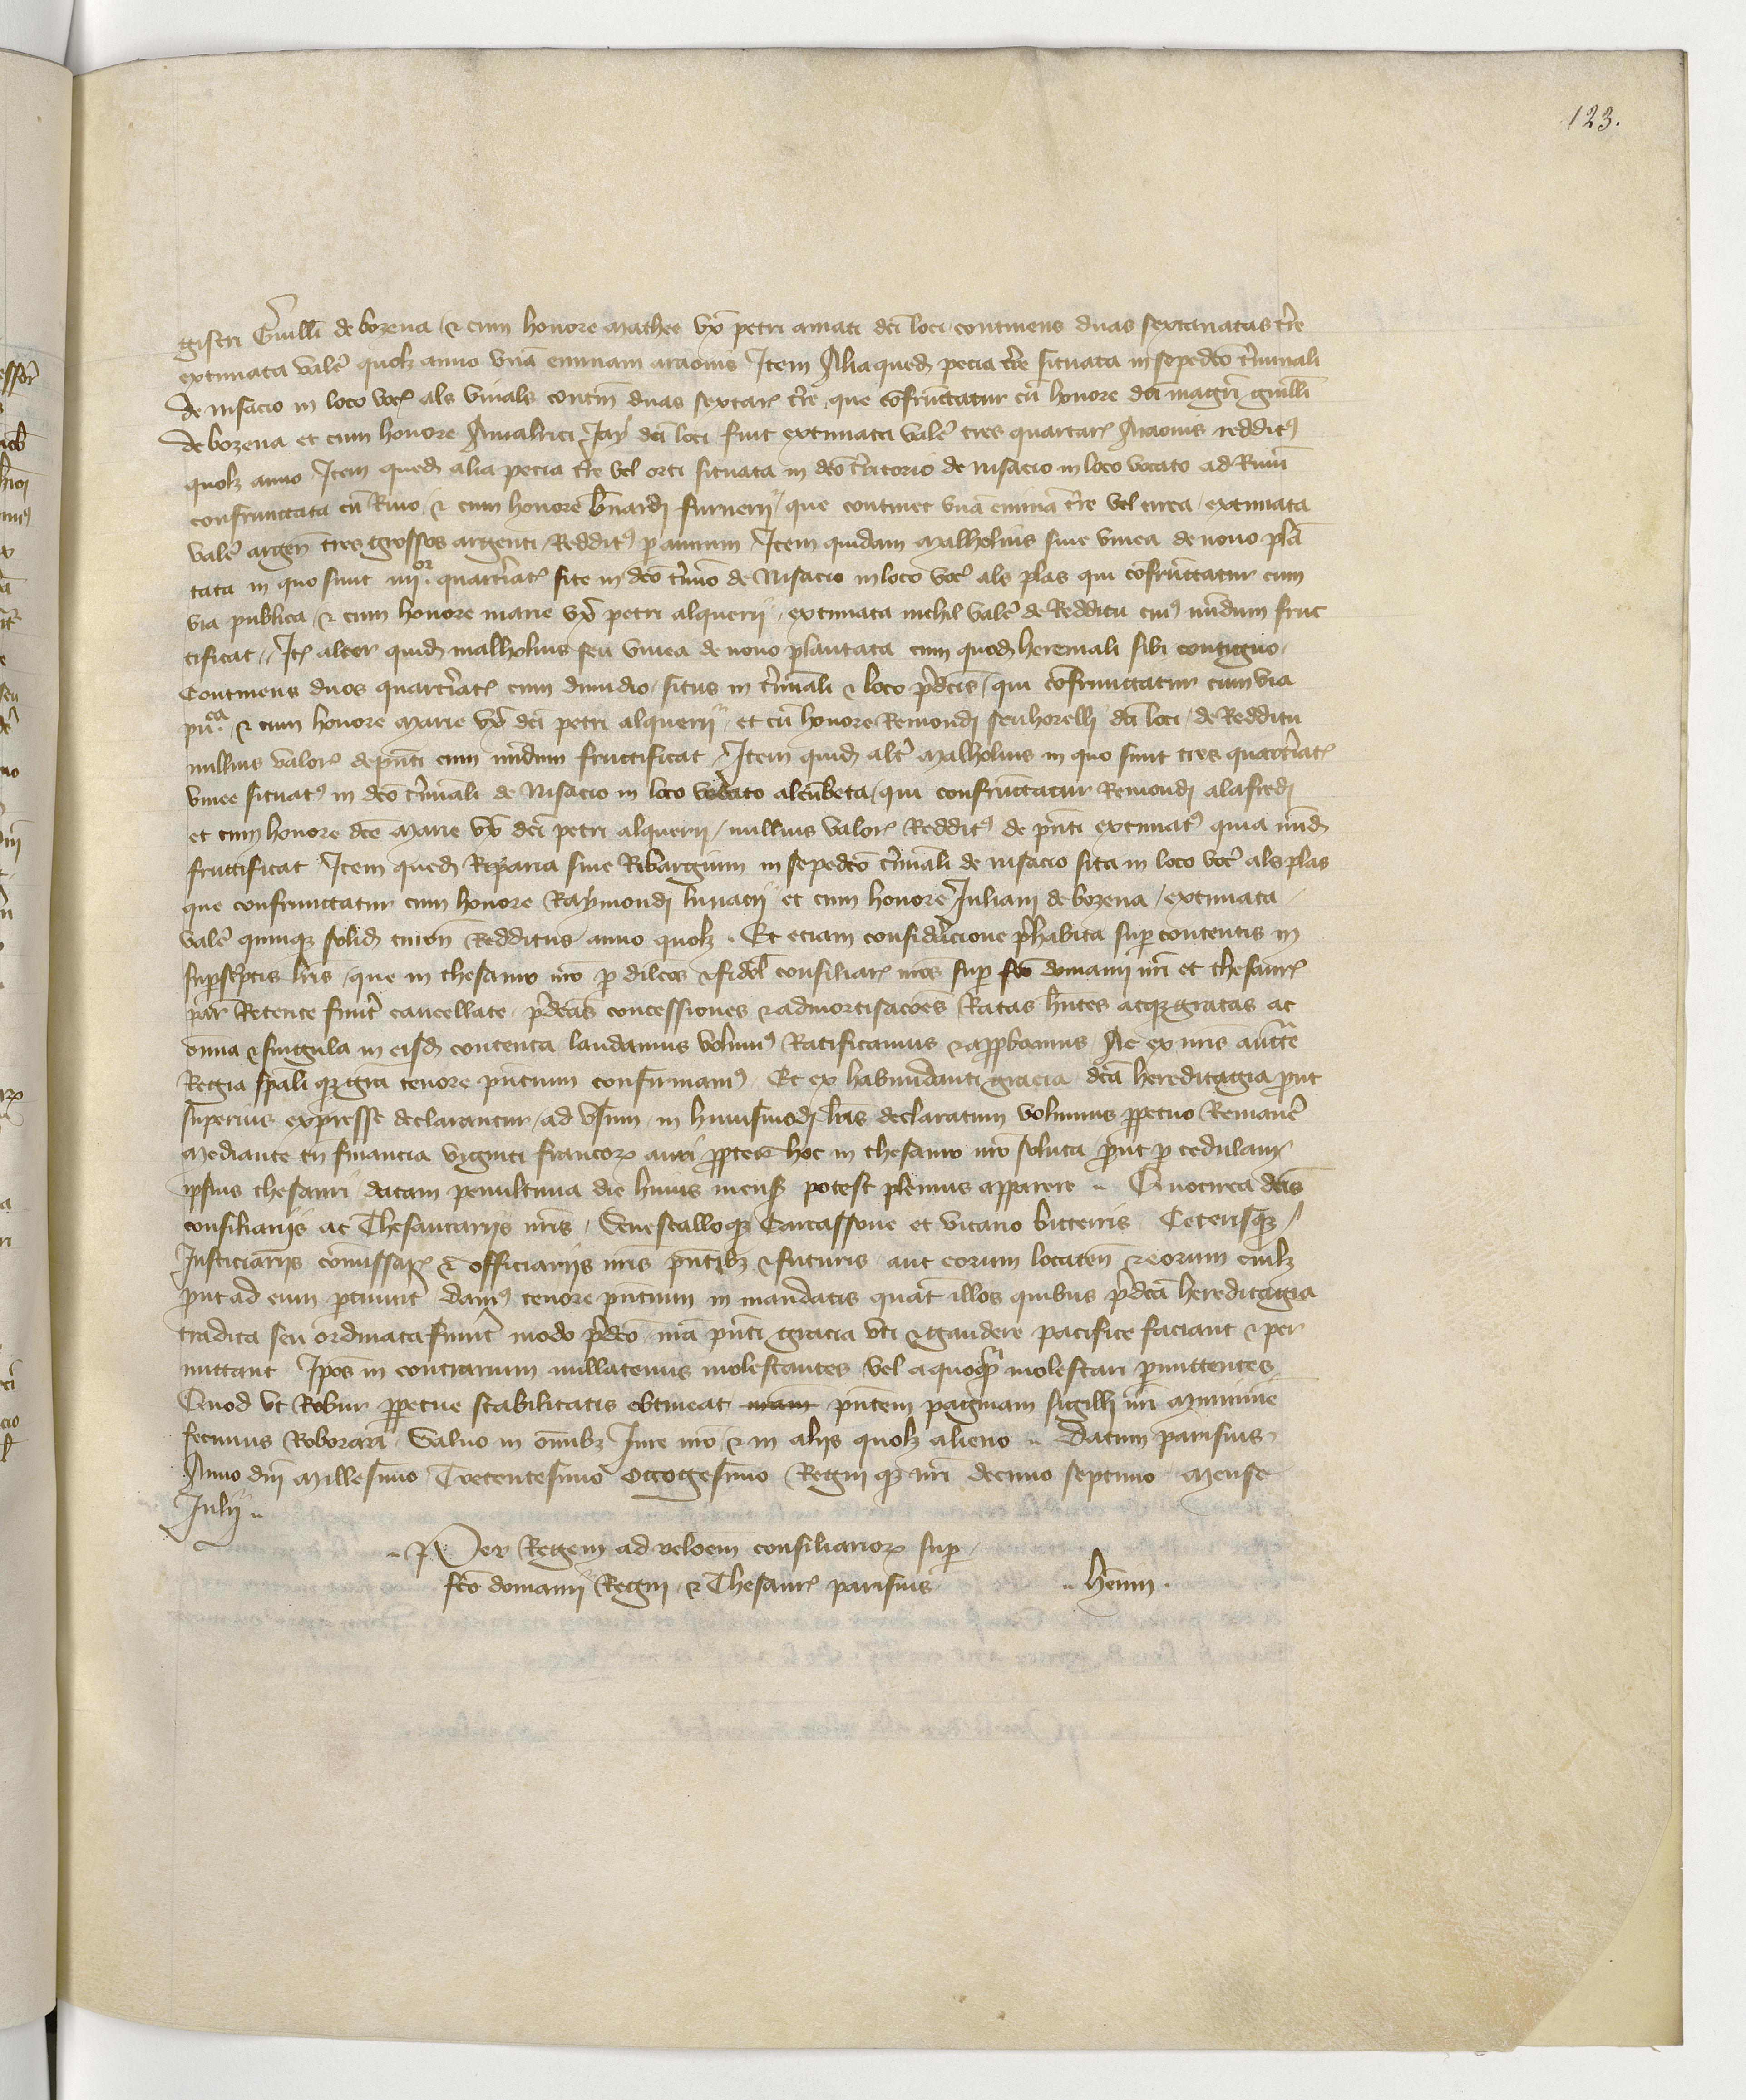 123.
gistri Guill̃i de bozena / & cum honore mathee vx̃ petri amati dc̃i loci continens duas sextariatas t̃re
extimata valẽ quolz anno vnã eminam araonis Item Alia quedã pecia t̃re situata in sepedc̃o t̃minali
de nisacio in loco voc̃ als vinals contiñ duas sextar̃ t̃re que cõfrũttatur cũ honore dc̃i magr̃i guill̃i
de bozena et cum honore Amalrici Jaÿ dc̃i loci fuit extimata valẽ tres quartar̃ Araonis reddit9
quolz anno Item quedã alia pecia t̃re vel orti situata in dc̃o t̃ritorio de nisacio in loco vocato ad Riuũ
confrunttata cũ Riuo & cum honore b̃nardi furnerii / que continet vnã eminã t̃re vel circa / extimata
valẽ argeñ tres grossos argenti / Reddit9 p annum Item quidam malholius siue vinea de nouo plã
tata in quo sunt iiiior quart̃iat̃ site in dc̃o t̃mĩo de Nisacio in loco voc̃ als plas qui cõfrũttatur cum
via publica / & cum honore marie vx̃ petri alquerii / extimata nichil valẽ de Redditu cui9 nũdum fruc
tificat // It̃ alter quidã malholius seu vinea de nouo plantata cum quodã heremali sibi contiguo /
Continens duos quart̃iat̃ cum dimidio / situs in t̃mĩali & loco p̃dc̃is / qui cõfrunttatur cum via
pũca & cum honore Marie vx̃ dc̃i petri alquerii / et cũ honore Remondi senhorelli dc̃i loci / de Redditu
nullius valor̃ de pñti cum nũdum fructificat / Item quidã alt̃ Malholius in quo sunt tres quart̃iat̃
vinee situat9 in dc̃o t̃mĩali de Nisacio in loco vocato aleũbeta / qui confrũttatur Remondi alafredi
et cum honore dc̃e Marie vx̃ dc̃i petri alquerii / nullius valor̃ Reddit9 de pñti extimat9 quia nũdũ
fruttificat Item quedã Riparia siue Ribargium in sepedc̃o t̃mĩali de nisacio sita in loco voc̃ als plas
que confrunttatur cum honore Raÿmondi lunacii et cum honore Juliani de bozena / extimata
valẽ quinqz solid̃ turoñ Redditus anno quolz . Et etiam consid̃acione p̃habita sup contentis in
suprasc̃ptis lr̃is / que in thesauro nr̃o p dilc̃os & fidel̃ consiliar̃ nr̃os sup fc̃o domanii nr̃i et thesaur̃
par̃ Retente fuer̃t cancellate p̃dc̃as concessiones & admortisac̃oes Ratas h̃ntes atqz gratas ac
om̃ia & singula in eisd̃ contenta laudamus volum9 Ratificamus & approbamus Ac ex nr̃is auttẽ
Regia sp̃ali qz gr̃a tenore pñtium confirmam9 Et ex habundanti gracia dc̃a hereditagia prout
superius expresse declarantur / ad vsum in huiusmodi lr̃is declaratum volumus ppetuo Remanẽ
Mediante tñ financia viginti francor̃ auri propter hoc in thesauro nr̃o soluta prout p cedulam
ipsius thesauri datam penultima die huius mens̃ potest plenius apparere . Quocirca dc̃is
consiliariis ac Thesaurariis nr̃is / Senescalloqz Carcassone et vicario bitterris Ceterisqz /
Justiciariis com̃issar̃ & officiariis nr̃is pñtibz & futuris aut eorum locateñ & eorum cuilz
prout ad eum ptinuit̃ dam9 tenore pñtium in mandatis quat̃ illos quibus p̃dc̃a hereditagia
tradita seu ordinata fuer̃t modo p̃dc̃o nr̃a pñti gracia vti & gaudere pacifice faciant & per
mittant Ip̃os in contrarium nullatenus molestantes vel a quoq̃ molestari p̃mittentes
Quod vt Robur ppetue stabilitatis obtineat pñtem paginam sigilli nr̃i munimine
fecimus Roborari Saluo in om̃ibz Jure nr̃o & in aliis quolz alieno .. Datum parisius
Anno dñi Millesimo Trecentesimo octogesimo Regni qz nr̃i decimo septimo Mense
Julii ..
.. Per Regem ad reloc̃em consiliarior̃ sup
fc̃o domanii Regni & Thesaur̃ parisius .. heñin .